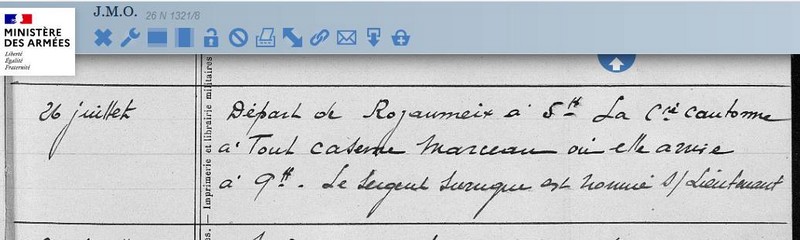 J.M.O. 26 N 1321/8
MINISTÈRE
DES ARMÉES
Liberté
Égalité
Fraternité
26 juillet
Départ de Rozaumeix à 5ʰ. La Cⁱᵉ cantonne
à Toul caserne Marceau où elle arrive
à 9ʰ. Le Sergent Surugue est nommé S/Lieutenant
Imprimerie et librairie militaires